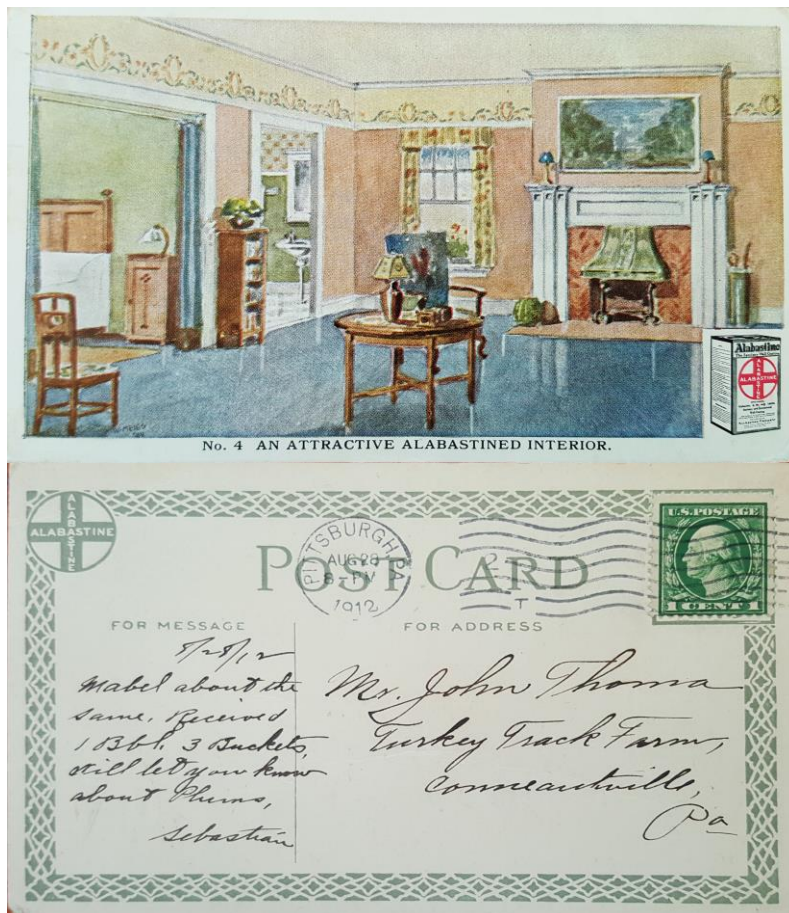 Alabastine
ALABASTINE
ALABASTINE
No. 4 AN ATTRACTIVE ALABASTINED INTERIOR.
ALABASTINE
ALABASTINE
POST CARD
PITTSBURGH, PA.
AUG 28
8 - PM
1912
T
U.S. POSTAGE
1 CENT 1
FOR MESSAGE
FOR ADDRESS
8/28/12
Mabel about the
same. Received
1 Bbl. 3 Buckets
will let you know
about Plums,
Sebastian
Mr. John Thoma
Turkey Track Farm,
Conneautville,
Pa